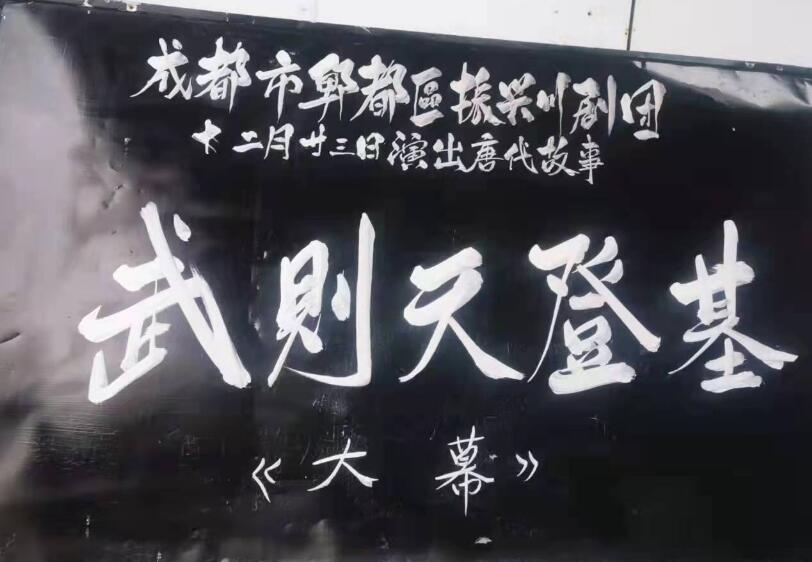 成都市郫都區振兴川剧团
十二月廿三日演出唐代故事
武則天登基
《大幕》